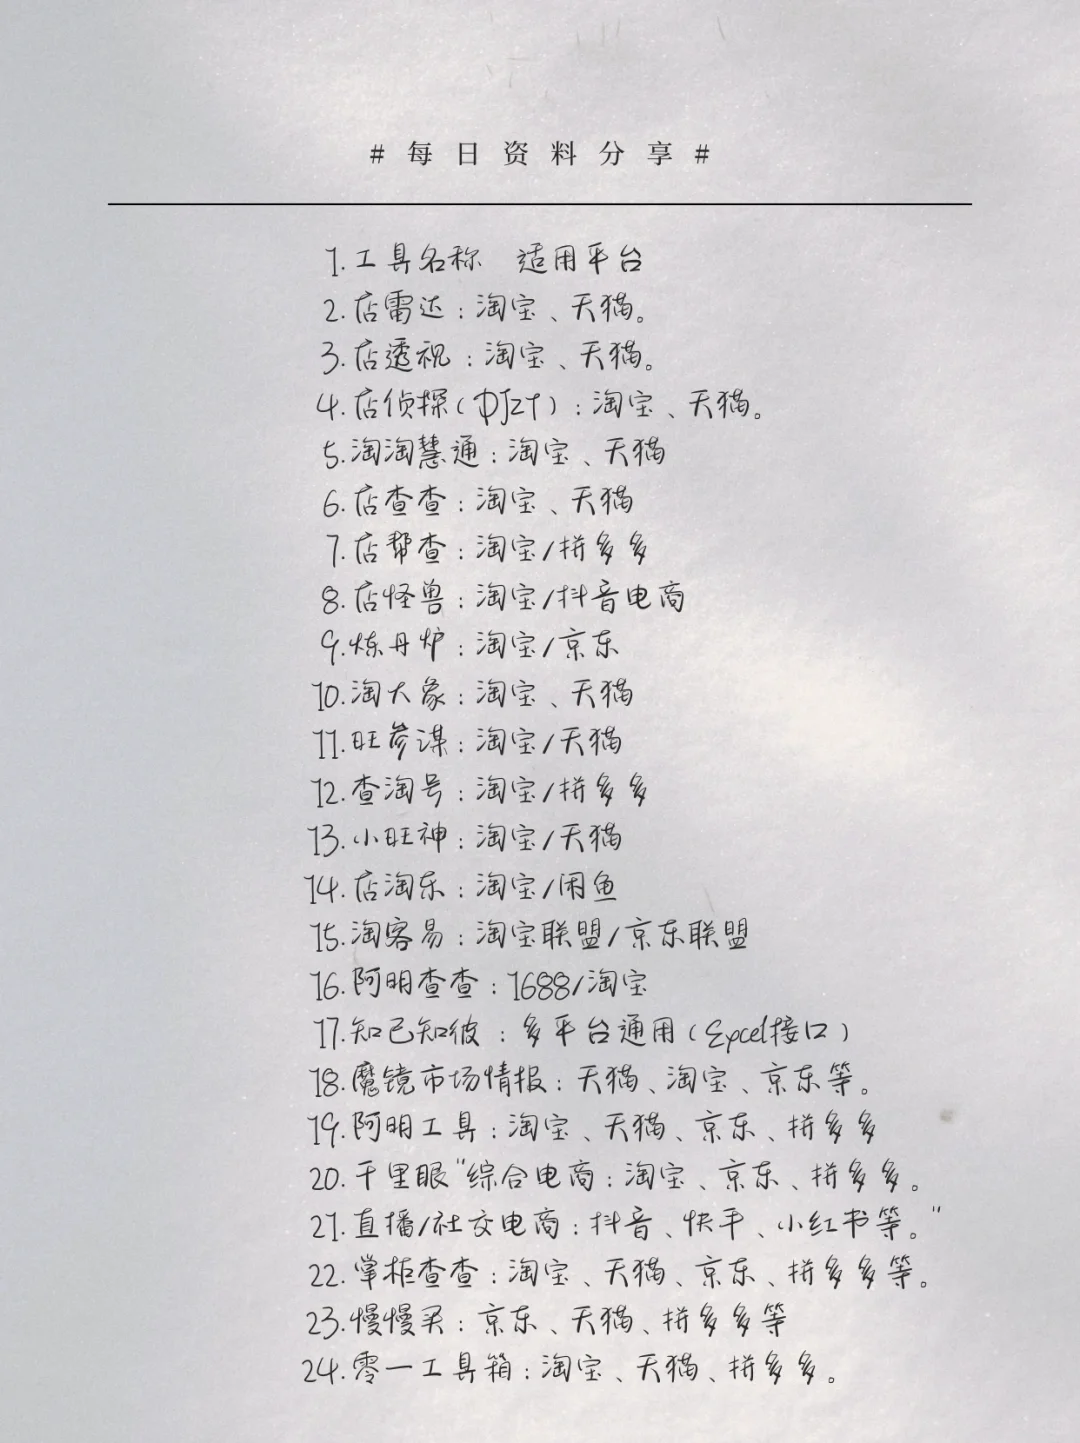 # 每日资料分享 #
1.工具名称 适用平台
2.店雷达：淘宝、天猫。
3.店透视：淘宝、天猫。
4.店侦探（DJZT）：淘宝、天猫。
5.淘淘慧通：淘宝、天猫
6.店查查：淘宝、天猫
7.店帮查：淘宝/拼多多
8.店怪兽：淘宝/抖音电商
9.炼丹炉：淘宝/京东
10.淘大象：淘宝、天猫
11.旺参谋：淘宝/天猫
12.查淘号：淘宝/拼多多
13.小旺神：淘宝/天猫
14.店淘东：淘宝/闲鱼
15.淘客易：淘宝联盟/京东联盟
16.阿明查查：1688/淘宝
17.知己知彼：多平台通用（Excel接口）
18.魔镜市场情报：天猫、淘宝、京东等。
19.阿明工具：淘宝、天猫、京东、拼多多
20.千里眼"综合电商：淘宝、京东、拼多多。
21.直播/社交电商：抖音、快手、小红书等。"
22.掌柜查查：淘宝、天猫、京东、拼多多等。
23.慢慢买：京东、天猫、拼多多等
24.零一工具箱：淘宝、天猫、拼多多。